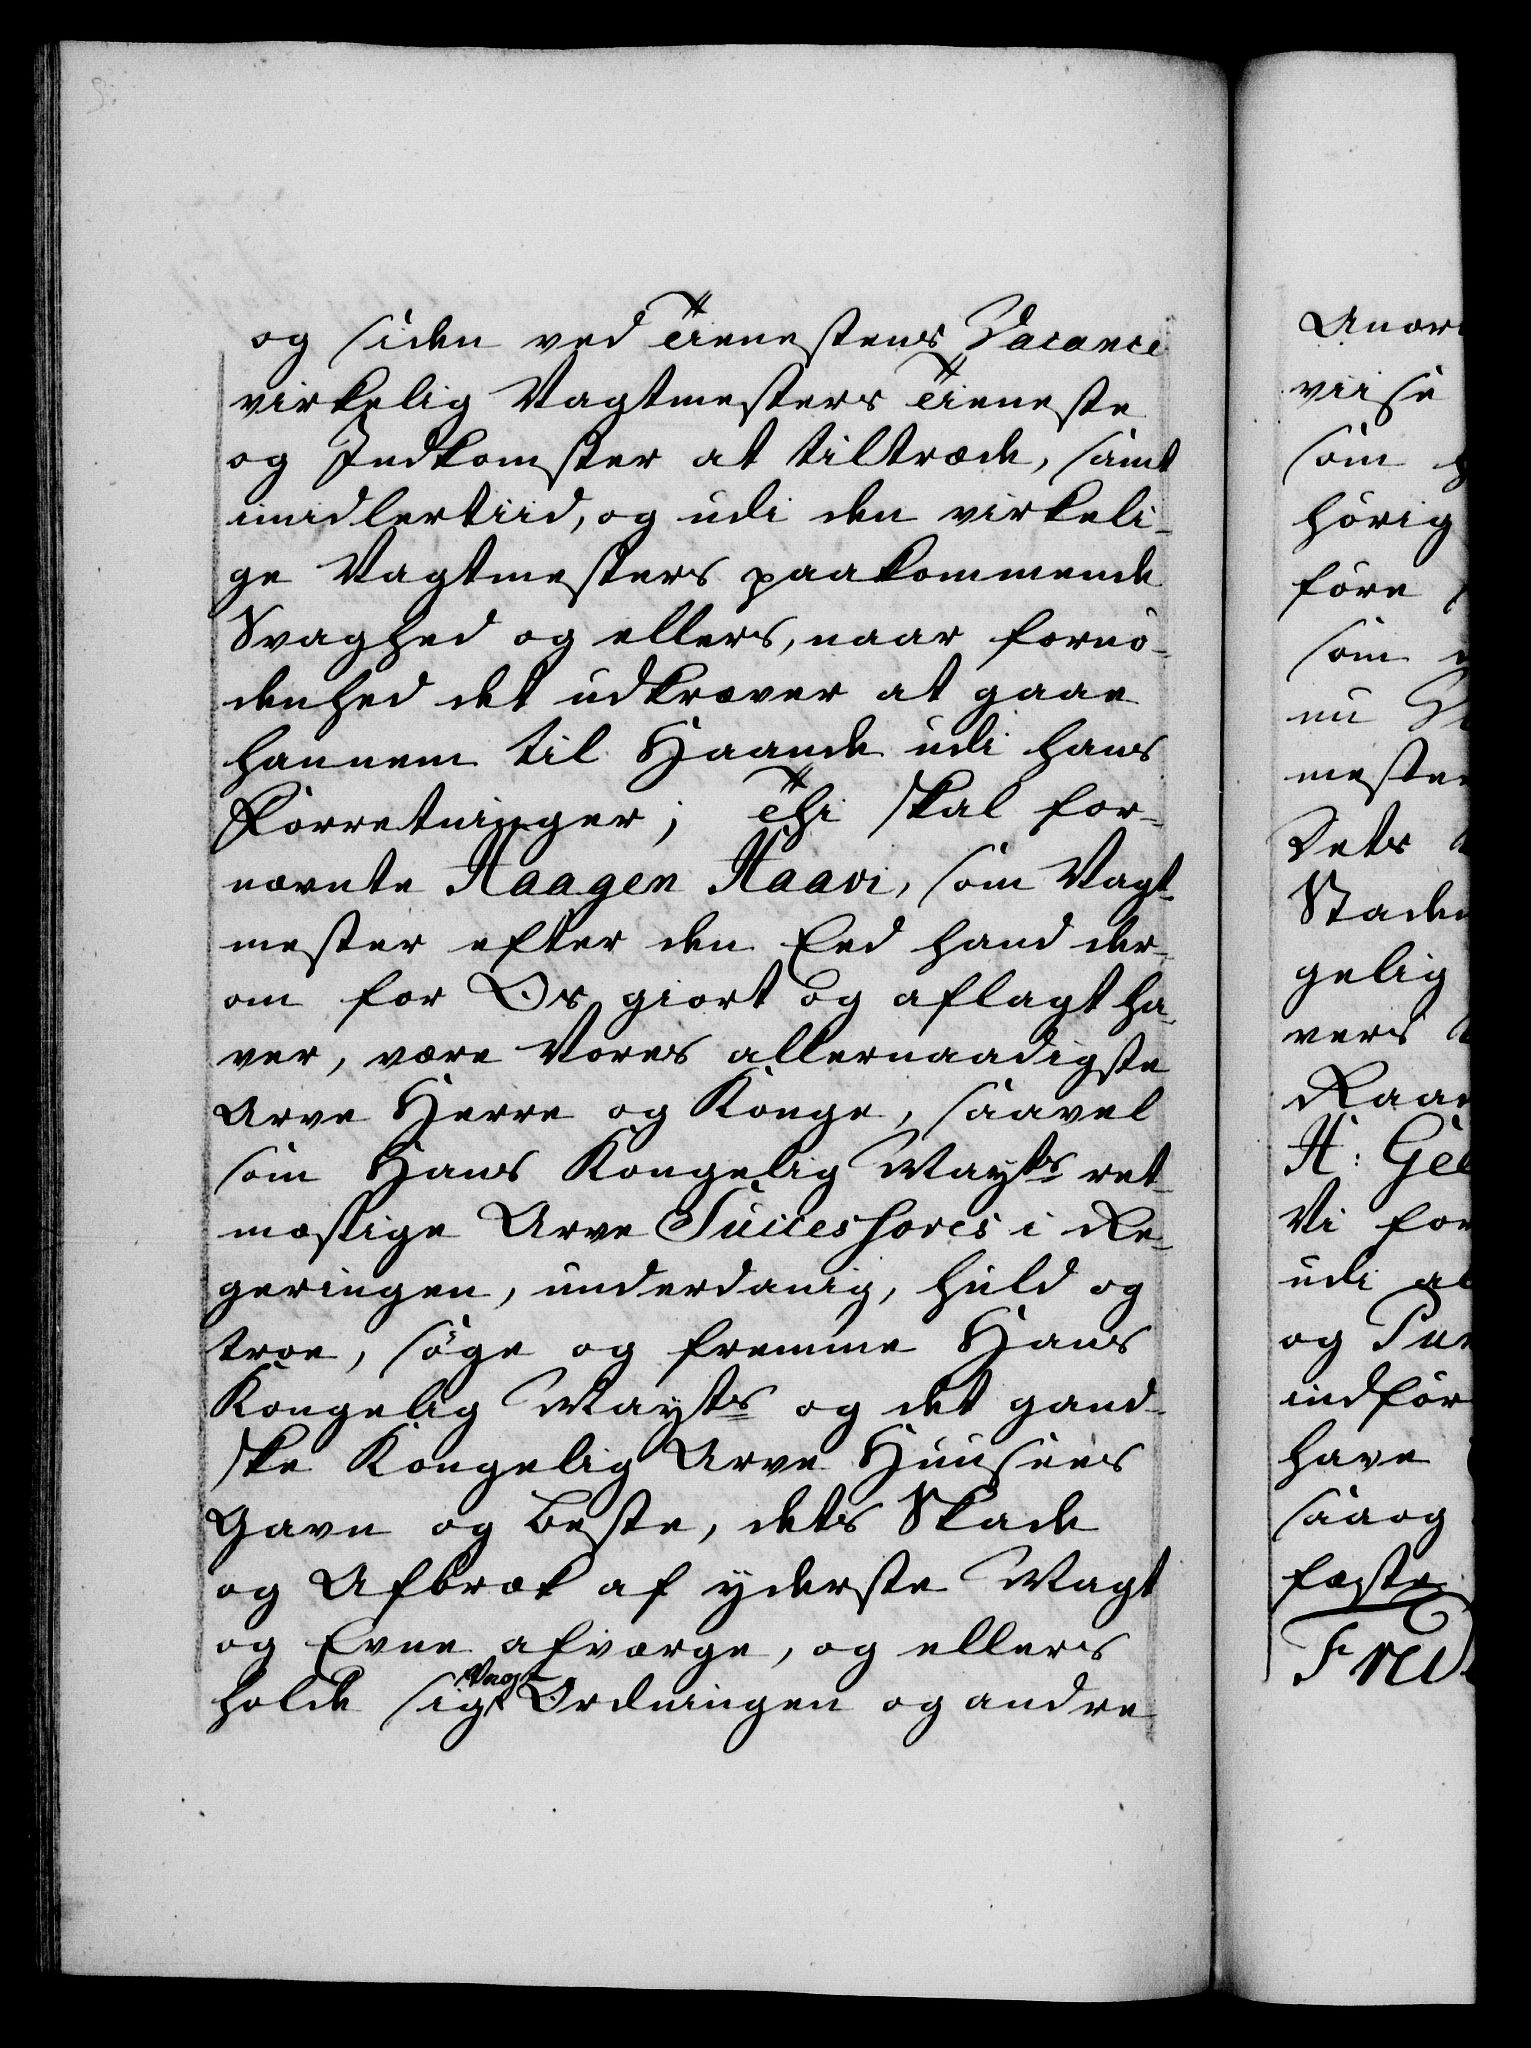 og siden ved Tienestens Vacance
virkelig Vagtmesters Tieneste
og Indkomster at tiltræde, samt
imidlertiid, og udi den virkeli-
ge Vagtmesters paakommende
Svaghed og ellers, naar fornö-
denhed det udkræver at gaae
hannem til Haande udi hans
Forretninger; Thi skal for-
nævnte Haagen Haavi, som Vagt-
mester efter den Eed hand der-
om for Os giort og aflagt ha-
ver, være Vores allernaadigste
Arve Herre og Konge, saavel
som Hans Kongelig Mayts ret-
mæssige Arve Successores i Re-
geringen, underdanig, huld og
troe, söge og fremme Hans
Kongelig Mayts og det gand-
ske Kongelig Arve Huuses
Gavn og beste, dets Skade
og Afbræk af yderste Magt
og Evne afværge, og ellers
holde sig Vagt Ordningen og andre
Anor
viise
som
hörig
före
som
nu
mester
Dets
Staden
gelig
vers
Raa
H: Gel
Vi for
udi al
og Pun
indför
have
saaog
fæste
Frid